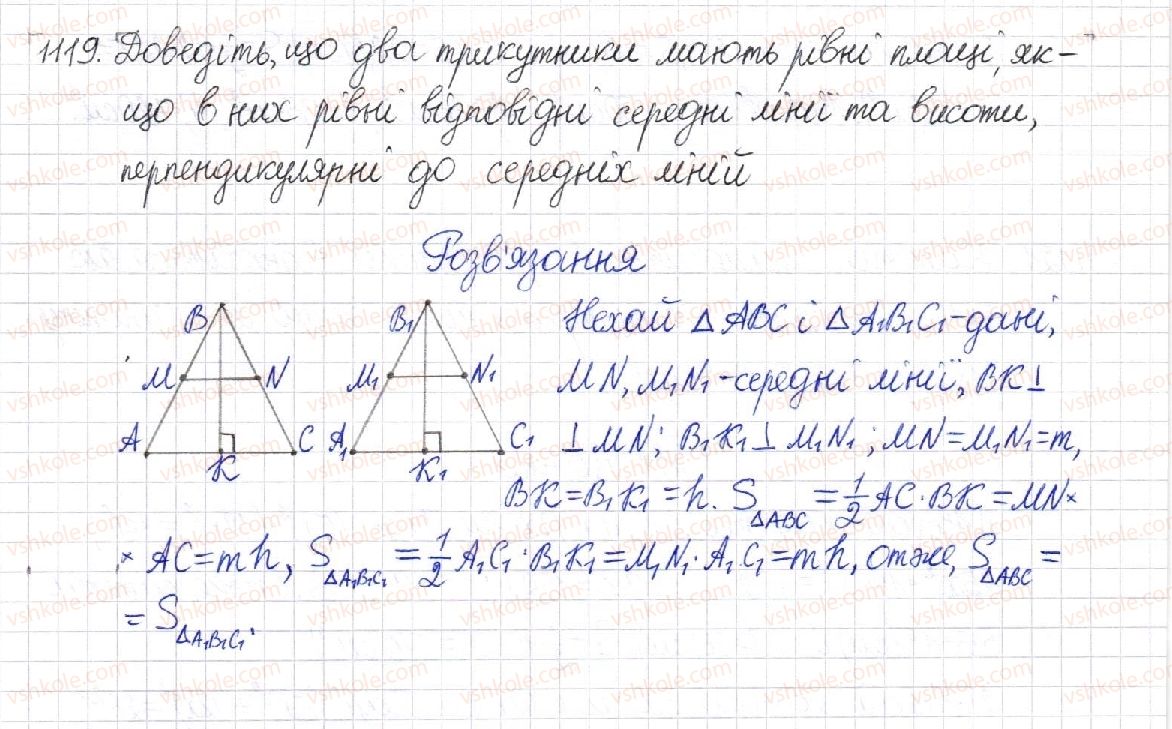 1119. Доведіть, що два трикутники мають рівні площі, як-
що в них рівні відповідні середні лінії та висоти,
перпендикулярні до середніх ліній
Розв'язання
B B₁ Нехай △ABC і △A₁B₁C₁-дані,
M N M₁ N₁ MN, M₁N₁-середні лінії, BK⊥
A K C A₁ K₁ C₁ ⊥MN; B₁K₁⊥M₁N₁; MN=M₁N₁=m,
BK=B₁K₁=h. S△ABC=1/2 AC·BK=MN×
×AC=mh, S△A₁B₁C₁=1/2 A₁C₁·B₁K₁=M₁N₁·A₁C₁=mh, отже, S△ABC=
=S△A₁B₁C₁.
vshkole.com